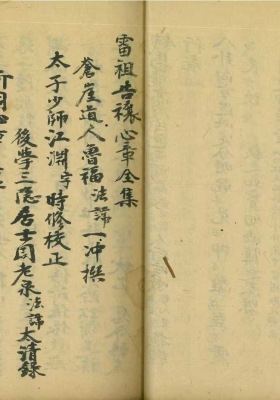 雷祖告禳心章全集
蒼崖道人魯福法諱一冲撰
太子少師江淵字時修校正
後學三隐居士周老泉法諱太清錄